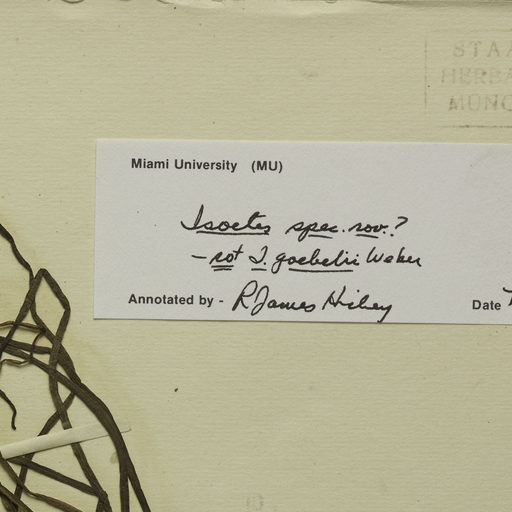 STA
HERBA
MÜNC
Miami University (MU)
Isoetes spec. nov.?
– not I. goebelii Weber
Annotated by - R James Hickey
Date